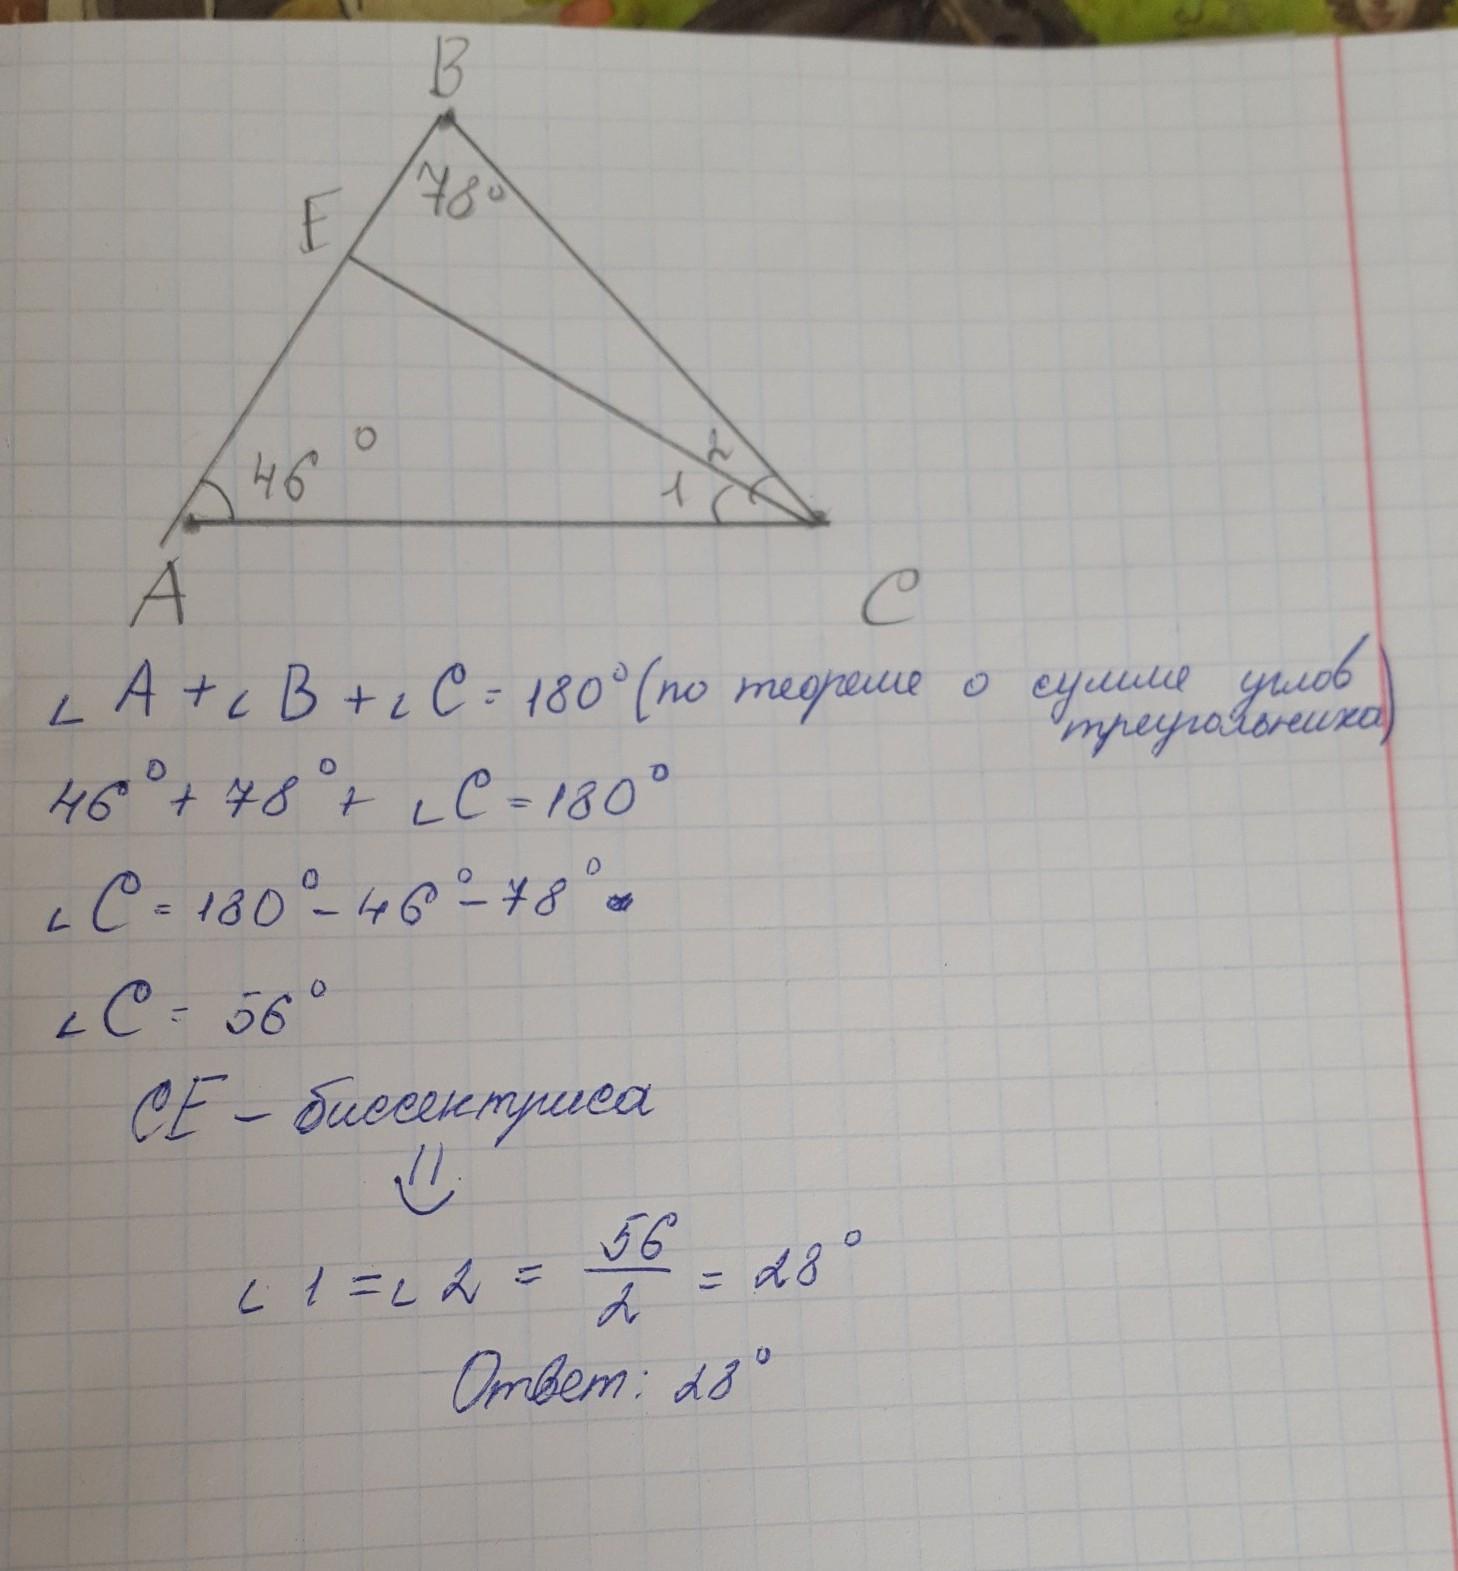 B
78°
E
46°
2
1
A
C
∠A + ∠B + ∠C = 180° (по теореме о сумме углов
треугольника)
46° + 78° + ∠C = 180°
∠C = 180° - 46° - 78°
∠C = 56°
CE - биссектриса
⇓
∠1 = ∠2 = 56/2 = 28°
Ответ: 28°